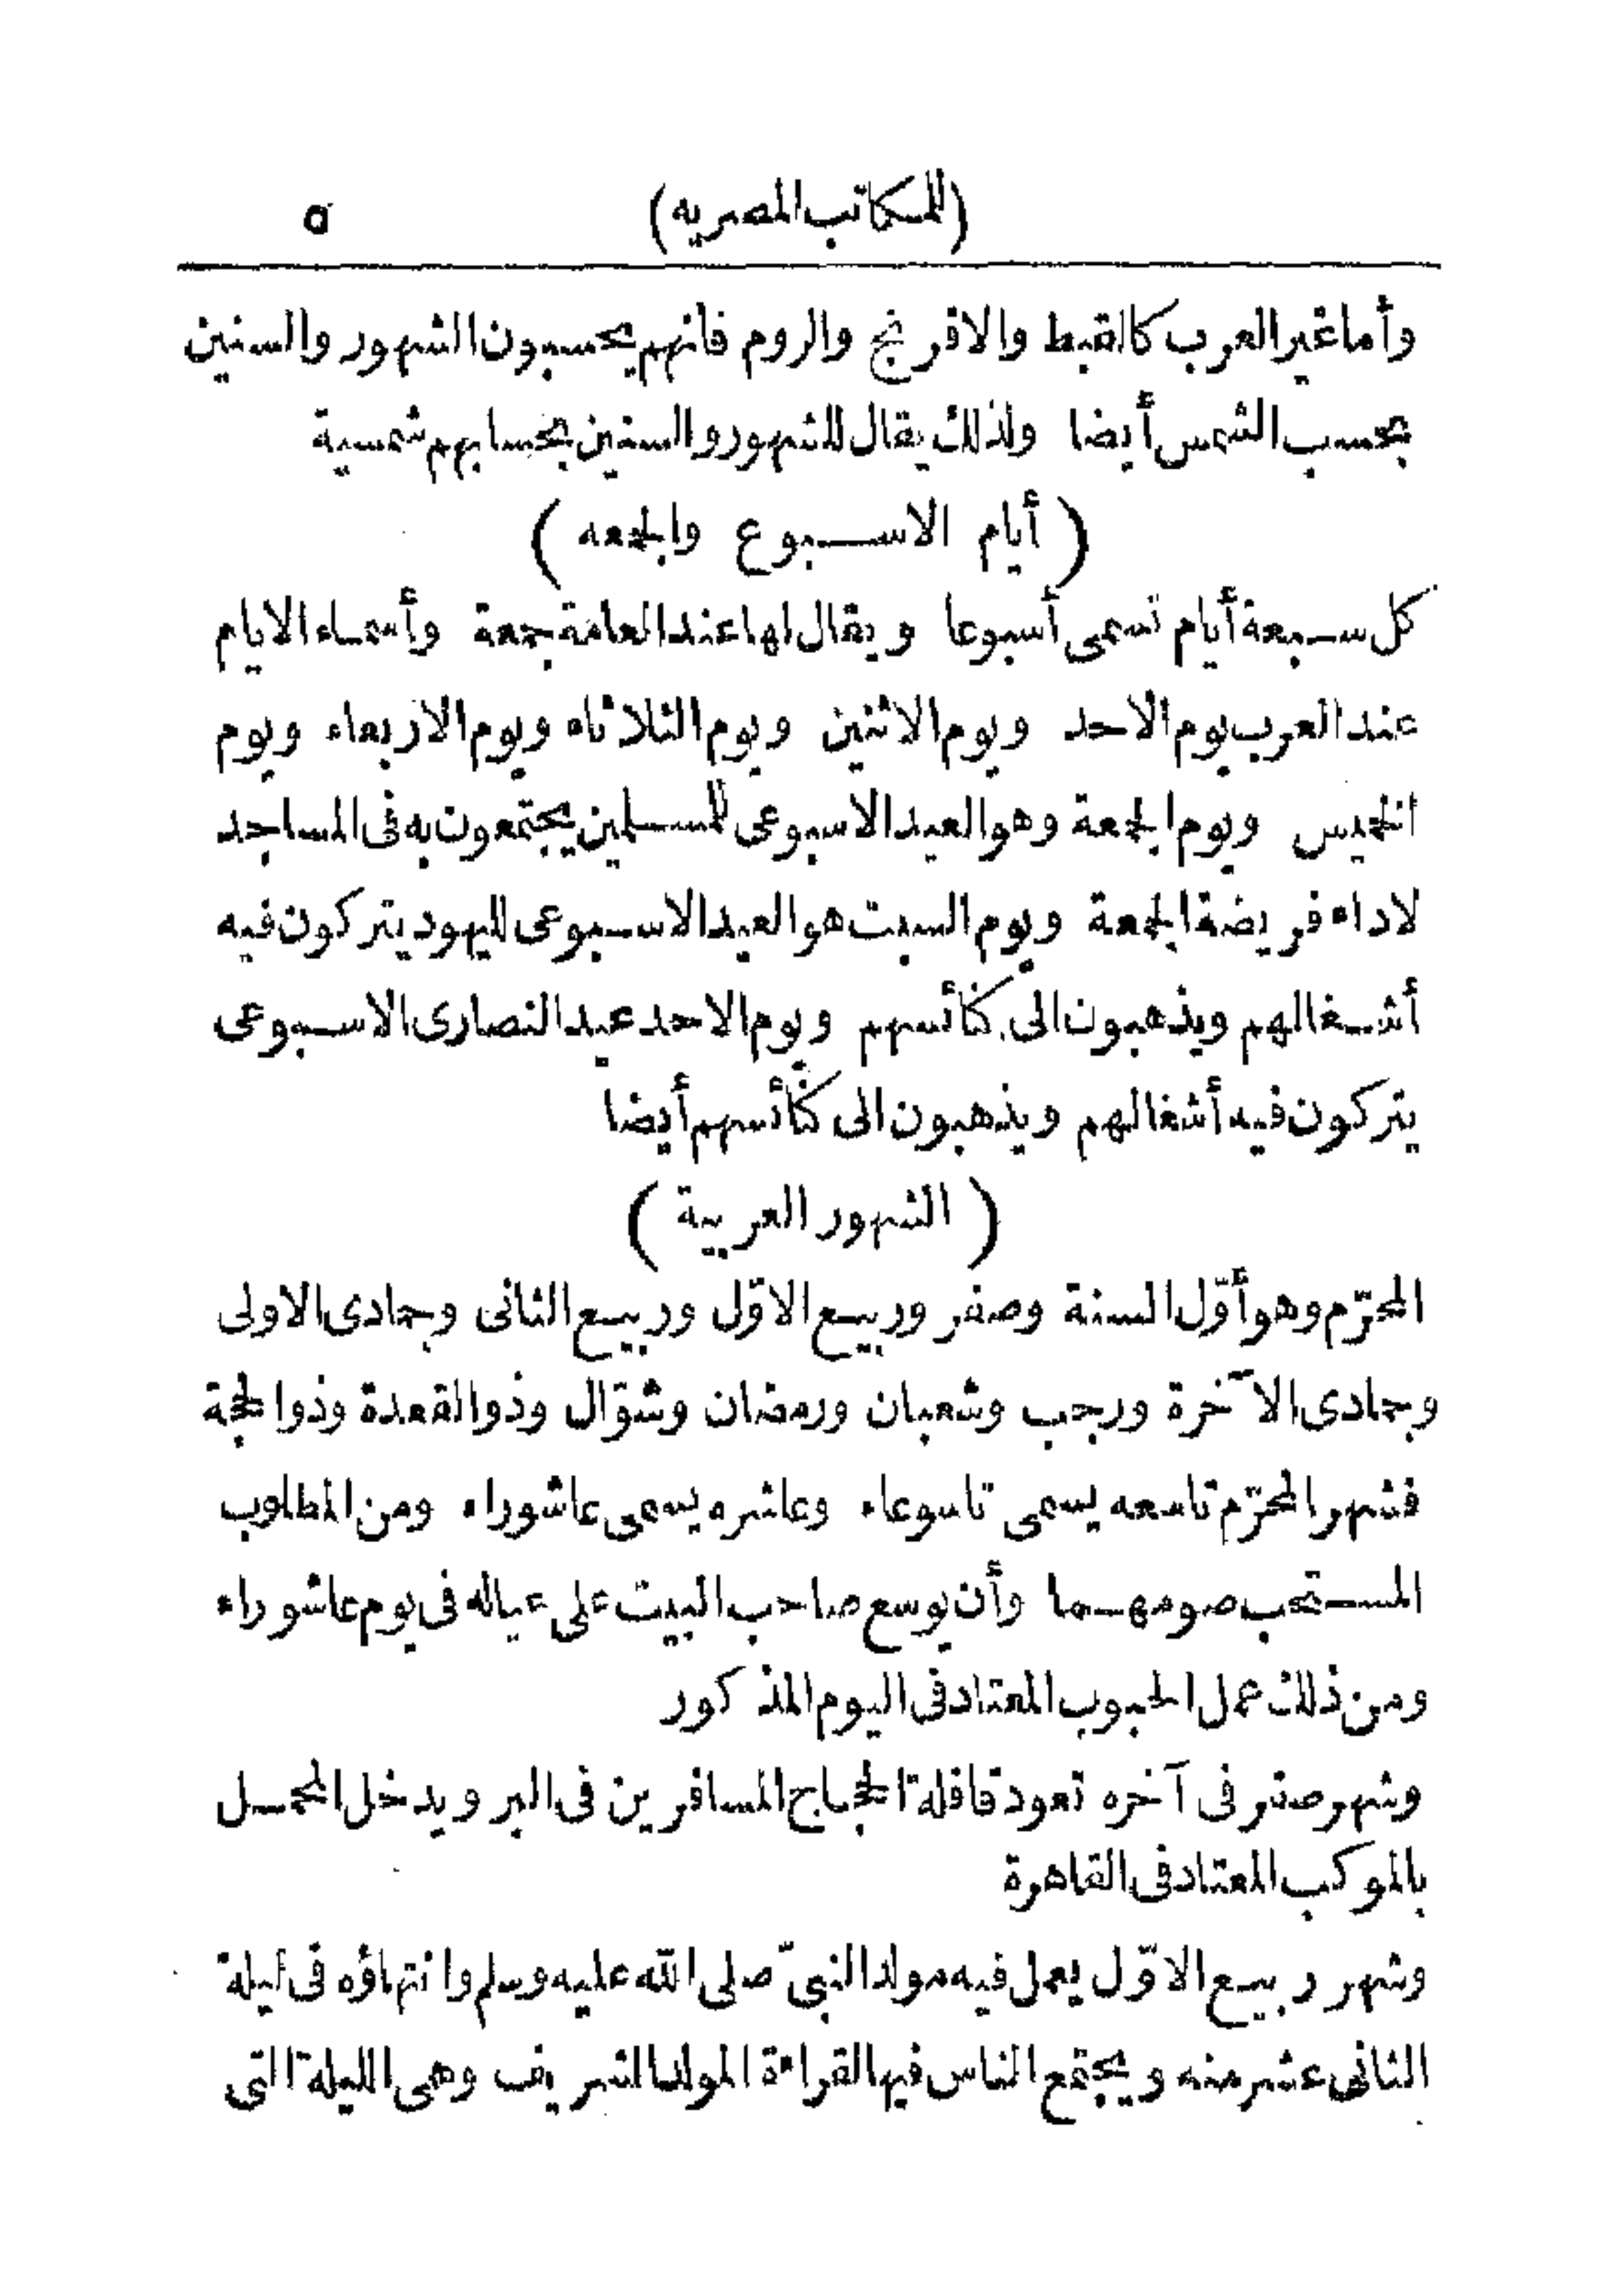 (للمكاتب المصريه) ٥
وأما غير العرب كالقبط والافرنج والروم فانهم يحسبون الشهور والسنين
بحسب الشمس أيضا ولذلك يقال للشهور والسنين بحسابهم شمسية
(أيام الاسبوع والجمعه)
كل سبعة أيام تسمى أسبوعا ويقال لها عند العامة جمعة وأسماء الايام
عند العرب يوم الاحد ويوم الاثنين ويوم الثلاثاء ويوم الاربعاء ويوم
الخميس ويوم الجمعة وهو العيد الاسبوعى للمسلمين يجتمعون به فى المساجد
لاداء فريضة الجمعة ويوم السبت هو العيد الاسبوعى لليهود يتركون فيه
أشغالهم ويذهبون الى كنائسهم ويوم الاحد عيد النصارى الاسبوعى
يتركون فيه أشغالهم ويذهبون الى كنائسهم أيضا
(الشهور العربية)
المحرّم وهو أوّل السنة وصفر وربيع الاوّل وربيع الثانى وجمادى الاولى
وجمادى الآخرة ورجب وشعبان ورمضان وشوّال وذو القعدة وذو الحجة
فشهر المحرّم تاسعه يسمى تاسوعاء وعاشره يسمى عاشوراء ومن المطلوب
المستحب صومهما وأن يوسع صاحب البيت على عياله فى يوم عاشوراء
ومن ذلك عمل الحبوب المعتاد فى اليوم المذكور
وشهر صفر فى آخره تعود قافلة الحجاج المسافرين فى البر ويدخل المحمل
بالموكب المعتاد فى القاهرة
وشهر ربيع الاوّل يعمل فيه مولد النبىّ صلى الله عليه وسلم وانتهاؤه فى ليلة
الثانى عشر منه ويجتمع الناس فيها لقراءة المولد الشريف وهى الليلة التى